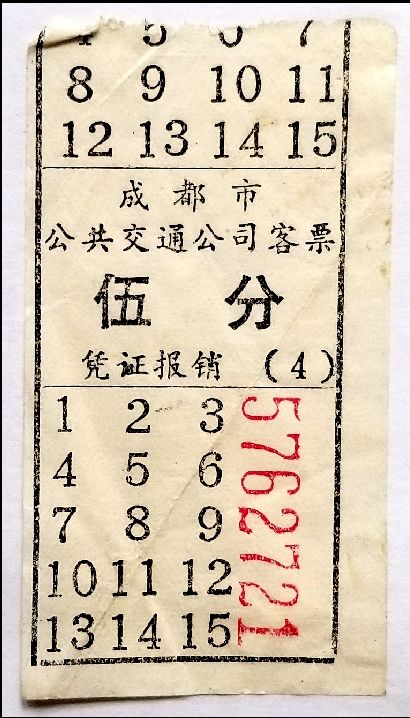 4 5 6 7
8 9 10 11
12 13 14 15
成都市
公共交通公司客票
伍分
凭证报销 (4)
1 2 3
4 5 6
7 8 9
10 11 12
13 14 15
5762721